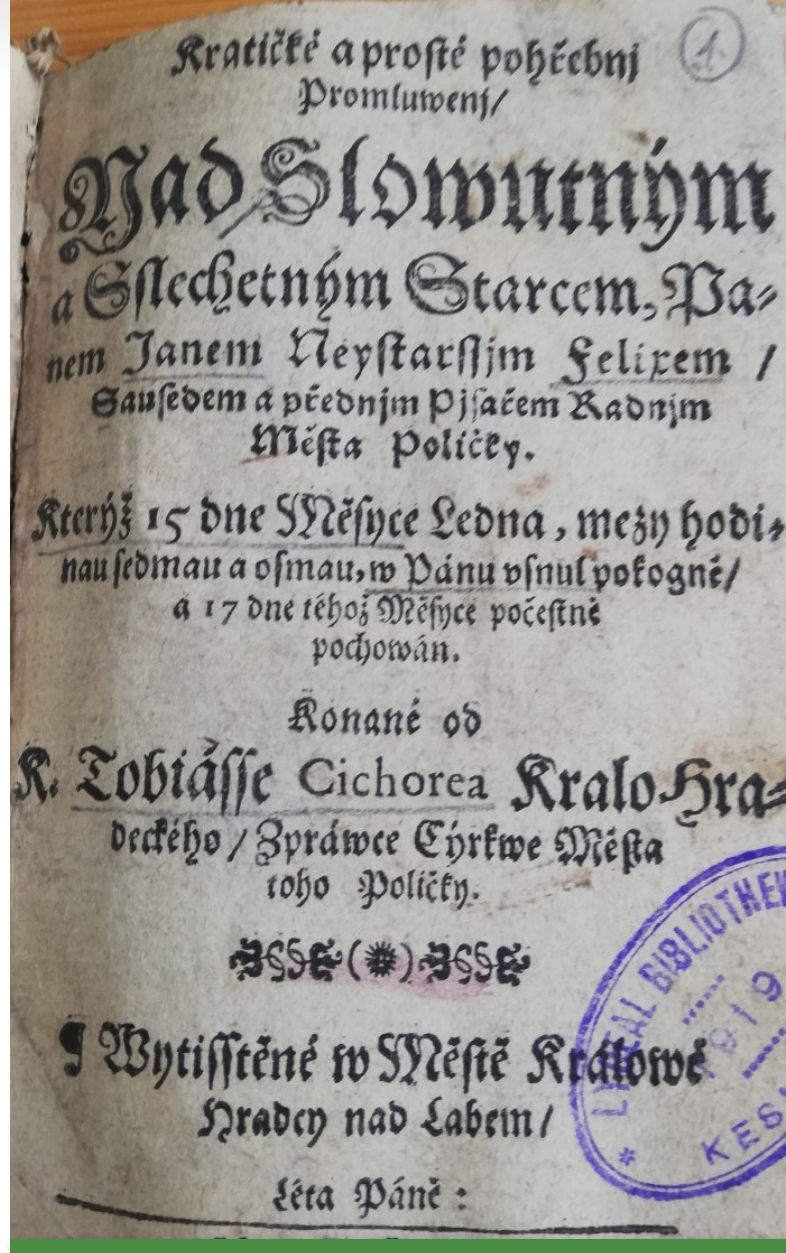 Kratičké a prosté pohřebnj
Promluwenj/
Nad Slowutným
a Sslechetným Starcem, Pa-
nem Janem Neystarssjm Felixem /
Sausedem a přednjm Pjsařem Radnjm
Města Poličky.
Kterýž 15 dne Měsyce Ledna, mezy hodi-
nau sedmau a osmau, w Pánu vsnul pokogně/
a 17 dne téhož Měsyce počestně
pochowán.
Konané od
K. Tobiásse Cichorea Kralo Hra-
deckého / Zpráwce Cýrkwe Města
toho Poličky.
¶ Wytisstěné w Městě Králowé
Hradcy nad Labem/
Léta Páně :
1.
BIBLIOTHEK
1919